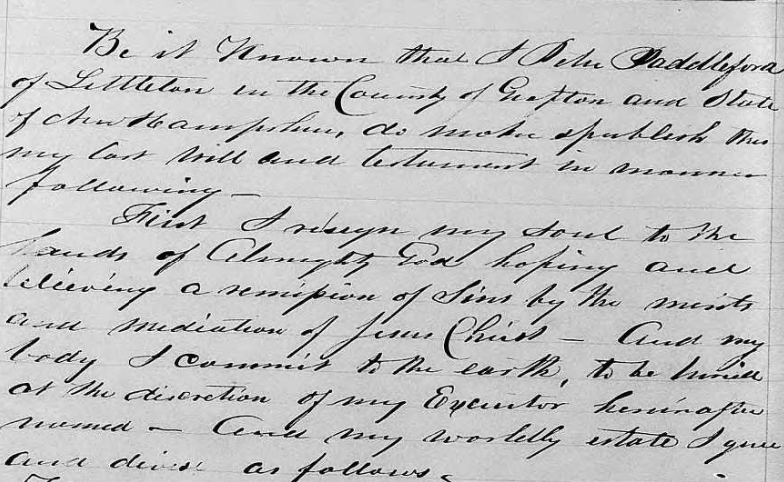 Be it Known that I Peter Paddleford
of Littleton in the County of Grafton and State
of New Hampshire, do make & publish this
my last will and testament in manner
following —
First I resign my soul to the
hands of Almighty God hoping and
believing a remission of Sins by the merits
and mediation of Jesus Christ — And my
body I commit to the earth, to be buried
at the discretion of my Executor hereinafter
named — And my worldly estate I give
and devise as follows.